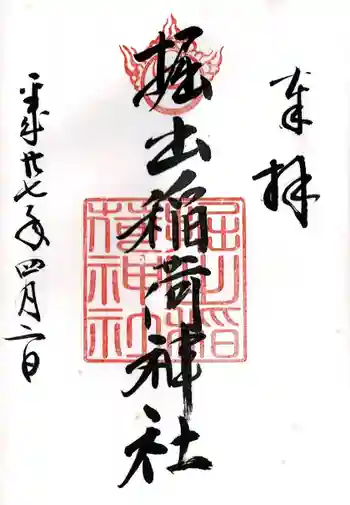 奉拝
掘出稲荷神社
掘出稲荷神社
平成廿七年四月二日